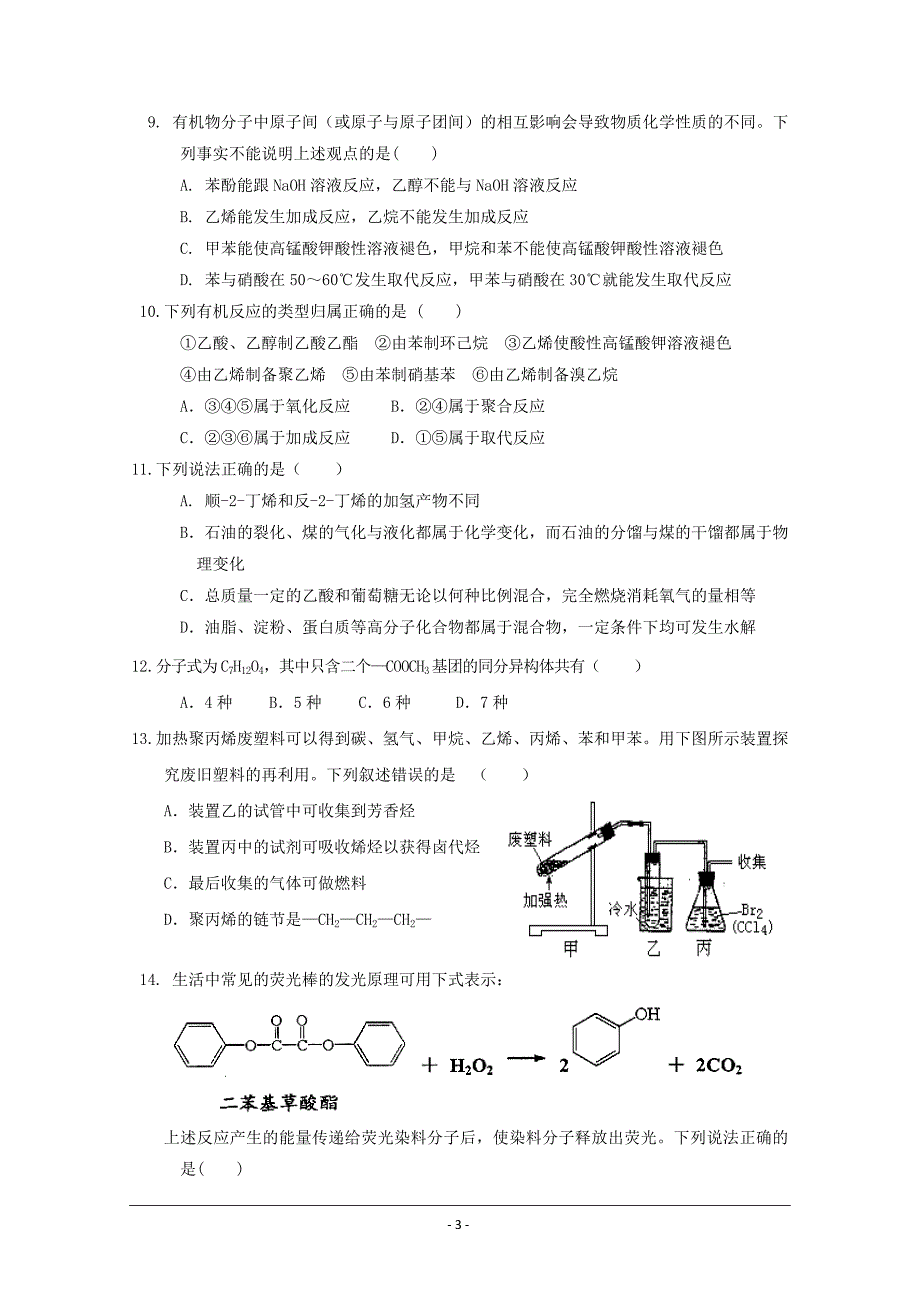 9. 有机物分子中原子间（或原子与原子团间）的相互影响会导致物质化学性质的不同。下
列事实不能说明上述观点的是(　　)
A. 苯酚能跟 NaOH 溶液反应，乙醇不能与 NaOH 溶液反应
B. 乙烯能发生加成反应，乙烷不能发生加成反应
C. 甲苯能使高锰酸钾酸性溶液褪色，甲烷和苯不能使高锰酸钾酸性溶液褪色
D. 苯与硝酸在 50～60℃发生取代反应，甲苯与硝酸在 30℃就能发生取代反应
10.下列有机反应的类型归属正确的是 (　　)
①乙酸、乙醇制乙酸乙酯　②由苯制环己烷　③乙烯使酸性高锰酸钾溶液褪色
④由乙烯制备聚乙烯　⑤由苯制硝基苯　⑥由乙烯制备溴乙烷
A．③④⑤属于氧化反应　　B．②④属于聚合反应
C．②③⑥属于加成反应　　D．①⑤属于取代反应
11.下列说法正确的是（　　）
A. 顺-2-丁烯和反-2-丁烯的加氢产物不同
B．石油的裂化、煤的气化与液化都属于化学变化，而石油的分馏与煤的干馏都属于物
理变化
C．总质量一定的乙酸和葡萄糖无论以何种比例混合，完全燃烧消耗氧气的量相等
D．油脂、淀粉、蛋白质等高分子化合物都属于混合物，一定条件下均可发生水解
12.分子式为 C₇H₁₂O₄，其中只含二个—COOCH₃ 基团的同分异构体共有（　　）
A．4 种　　B．5 种　　C．6 种　　D．7 种
13.加热聚丙烯废塑料可以得到碳、氢气、甲烷、乙烯、丙烯、苯和甲苯。用下图所示装置探
究废旧塑料的再利用。下列叙述错误的是　（　　）
A．装置乙的试管中可收集到芳香烃
B．装置丙中的试剂可吸收烯烃以获得卤代烃
C．最后收集的气体可做燃料
D．聚丙烯的链节是—CH₂—CH₂—CH₂—
废塑料
加强热
冷水
收集
Br₂
(CCl₄)
甲　乙　丙
14. 生活中常见的荧光棒的发光原理可用下式表示：
O O OH
O C C O + H₂O₂ → 2 + 2CO₂
二苯基草酸酯
上述反应产生的能量传递给荧光染料分子后，使染料分子释放出荧光。下列说法正确的
是(　　)
- 3 -